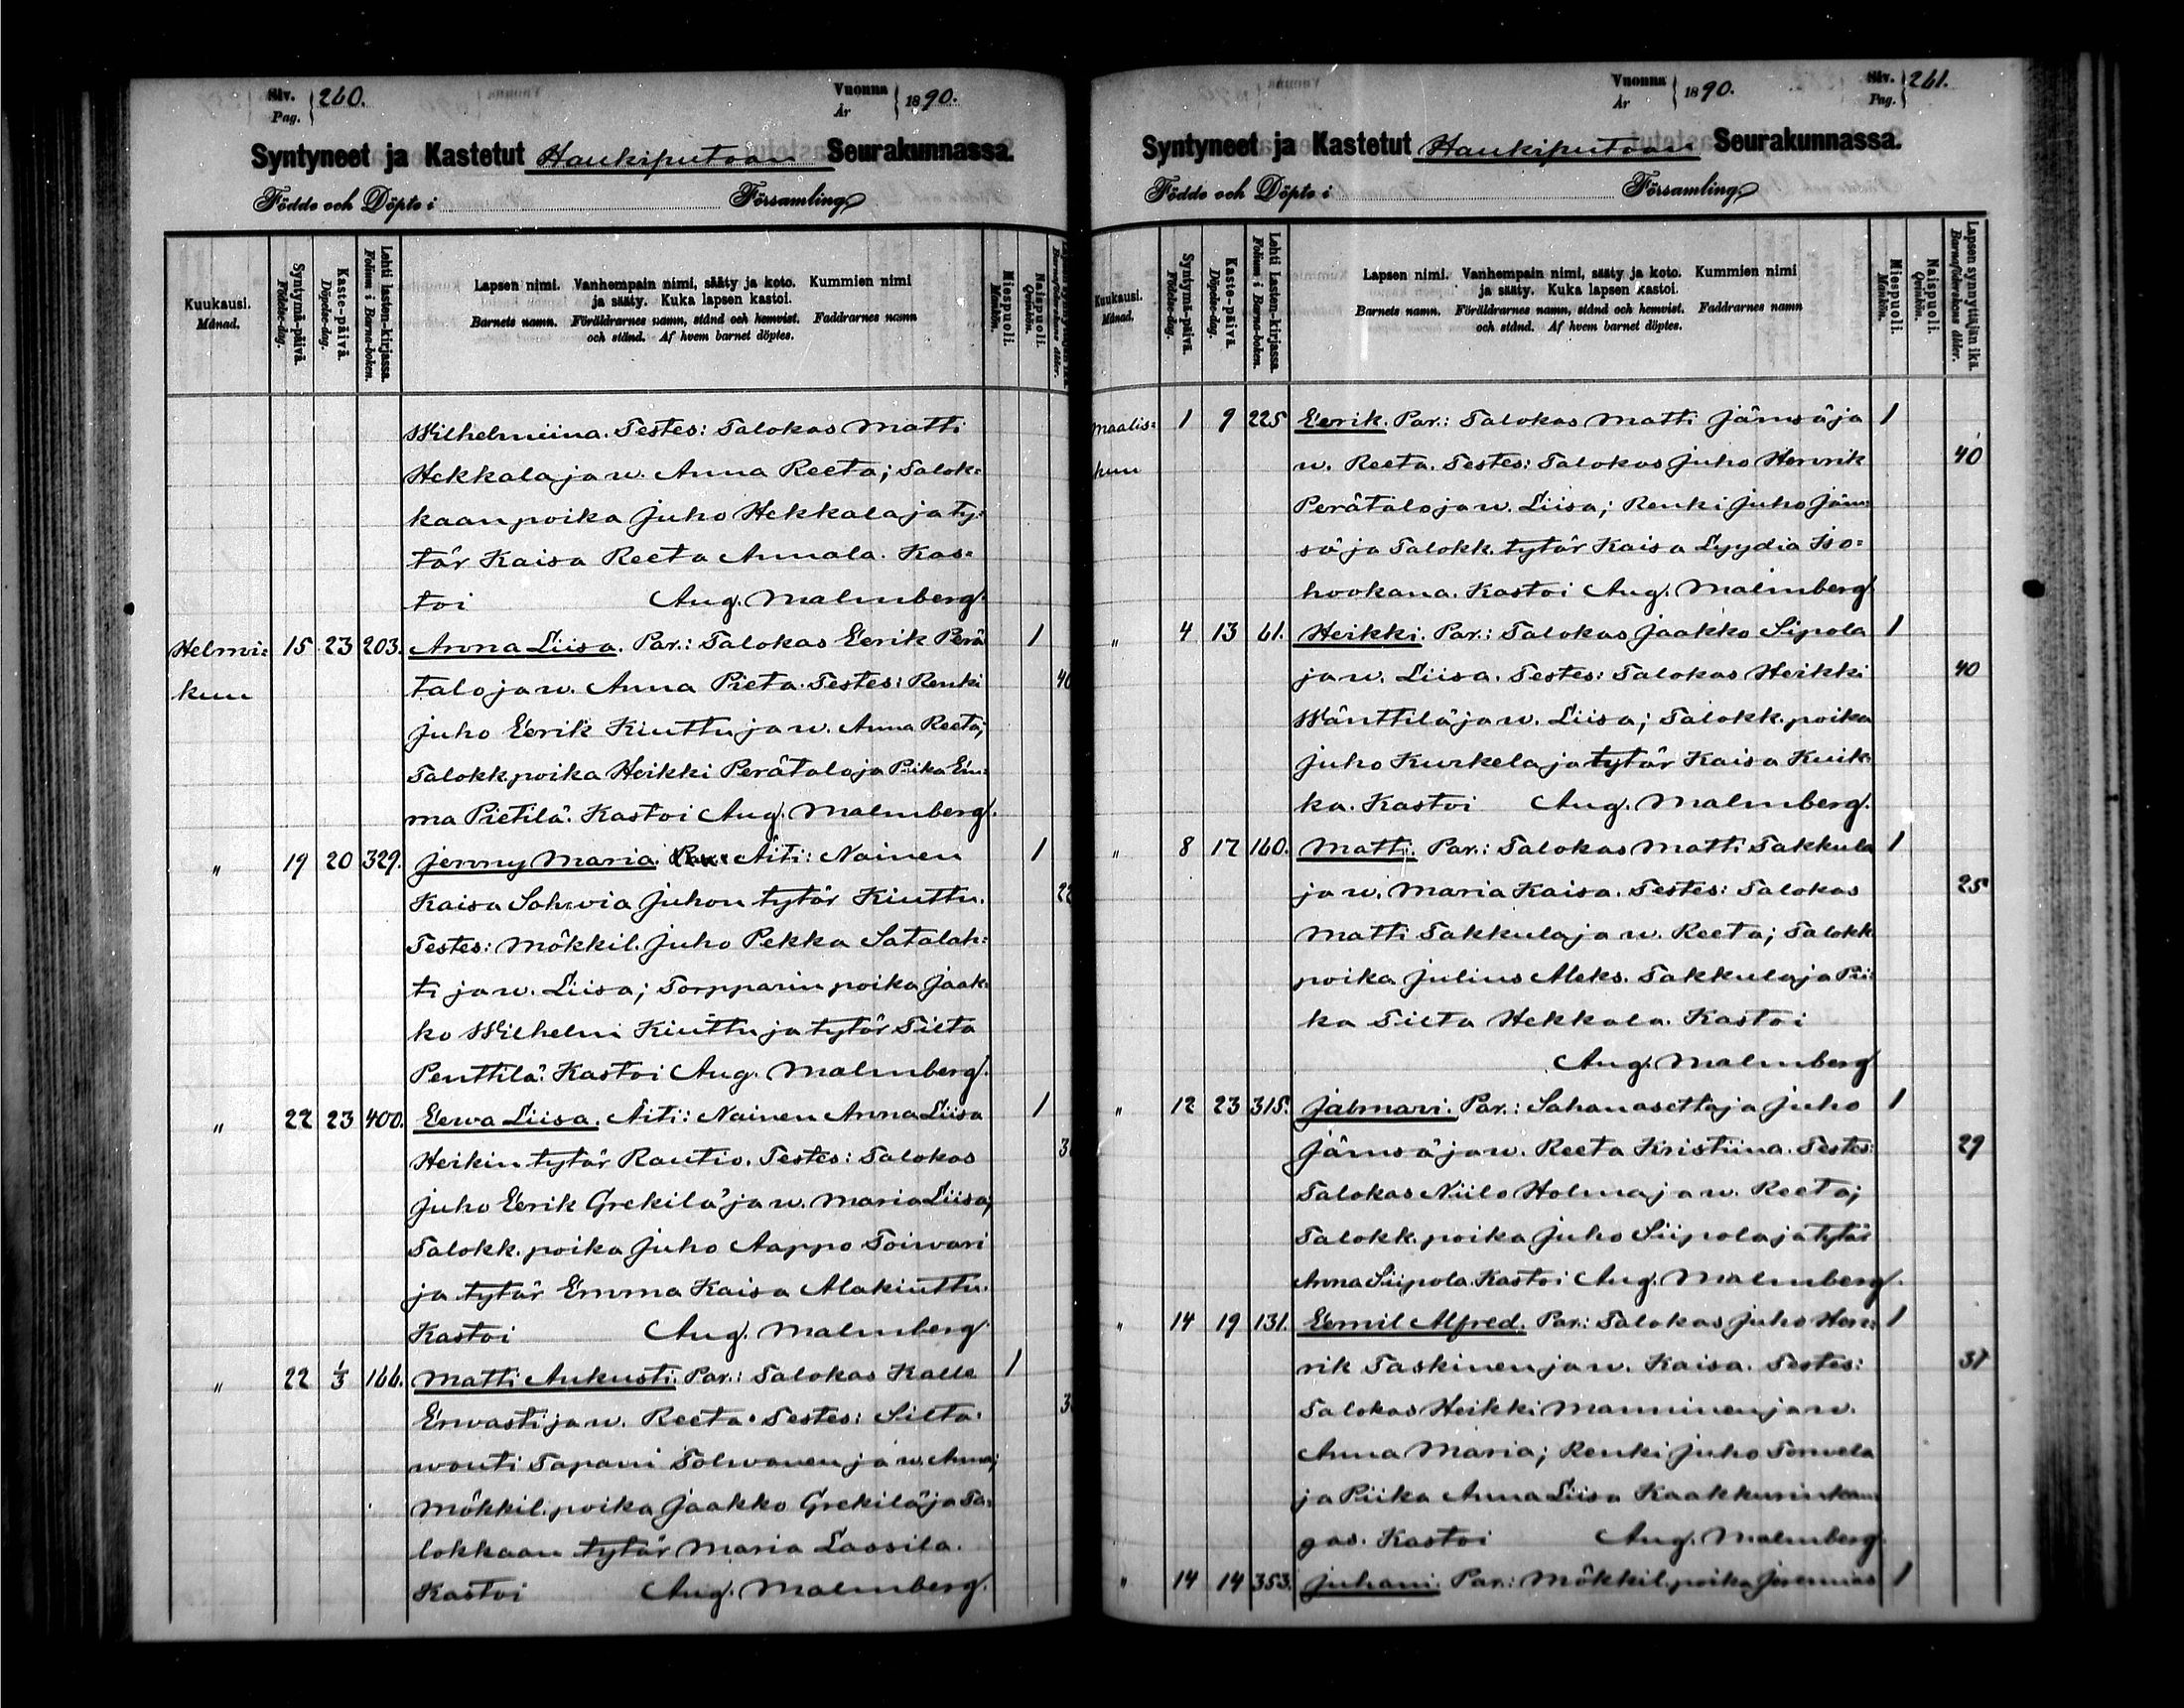 Siv. Pag. 260. Vuonna År 1890.
Syntyneet ja Kastetut Haukiputaan Seurakunnassa.
Födde och Döpte i Församling
Kuukausi. Månad.
Syntymä-päivä. Födelse-dag.
Kaste-päivä. Döpelse-dag.
Lehti lasten-kirjassa. Folium i Barna-boken.
Lapsen nimi. Vanhempain nimi, sääty ja koto. Kummien nimi
ja sääty. Kuka lapsen kastoi.
Barnets namn. Föräldrarnes namn, stånd och hemvist. Faddrarnes namn
och stånd. Af hvem barnet döptes.
Miespuoli. Mankön.
Naispuoli. Qvinkön.
Wilhelmiina. Testes: Talokas Matti
Hekkala ja w. Anna Reeta; Talok-
kaan poika Juho Hekkala ja ty-
tär Kaisa Reeta Annala. Kas-
toi Aug. Malmberg.
Helmi- 15 23 203. Anna Liisa. Par.: Talokas Eerik Perä 1
kuu talo ja w. Anna Pieta. Testes: Renki 40
Juho Eerik Kiuttu ja w. Anna Reeta;
Talokk. poika Heikki Perätalo ja Piika Em-
ma Pietilä. Kastoi Aug. Malmberg.
" 19 20 329. Jenny Maria. Äiti: Nainen 1
Kaisa Sohvia Juhon tytär Kiuttu. 22
Testes: Mökkil. Juho Pekka Satalah-
ti ja w. Liisa; Torpparin poika Jaak-
ko Wilhelm Kiuttu ja tytär Tilta
Penttilä. Kastoi Aug. Malmberg.
" 22 23 400. Eewa Liisa. Äiti: Nainen Anna Liisa 1
Heikin tytär Rautio. Testes: Talokas 3
Juho Eerik Grekilä ja w. Maria Liisa;
Talokk. poika Juho Aappo Toiwari
ja tytär Emma Kaisa Alakiuttu.
Kastoi Aug. Malmberg
" 22 1/3 166. Matti Aukusti. Par.: Talokas Kalle 1
Erwasti ja w. Reeta. Testes: Silta- 3
wouti Tapani Tolwanen ja w. Anna;
Mökkil. poika Jaakko Grekilä ja Ta-
lokkaan tytär Maria Laosila.
Kastoi Aug. Malmberg.
Vuonna År 1890. Siv. Pag. 261.
Syntyneet ja Kastetut Haukiputaan Seurakunnassa.
Födde och Döpte i Församling
Kuukausi. Månad.
Syntymä-päivä. Födelse-dag.
Kaste-päivä. Döpelse-dag.
Lehti lasten-kirjassa. Folium i Barna-boken.
Lapsen nimi. Vanhempain nimi, sääty ja koto. Kummien nimi
ja sääty. Kuka lapsen kastoi.
Barnets namn. Föräldrarnes namn, stånd och hemvist. Faddrarnes namn
och stånd. Af hvem barnet döptes.
Miespuoli. Mankön.
Naispuoli. Qvinkön.
Lapsen synnyttäjän ikä. Barnaföderskans ålder.
Maalis- 1 9 225 Eerik. Par.: Talokas Matti Jämsä ja 1
kuu w. Reeta. Testes: Talokas Juho Henrik 40
Perätalo ja w. Liisa; Renki Juho Jäm-
sä ja Talokk. tytär Kaisa Lyydia Iso-
hookana. Kastoi Aug. Malmberg
" 4 13 61. Heikki. Par.: Talokas Jaakko Sipola 1
ja w. Liisa. Testes: Talokas Heikki 40
Wänttilä ja w. Liisa; Talokk. poika
Juho Kurkela ja tytär Kaisa Kuik-
ka. Kastoi Aug. Malmberg.
" 8 17 160. Matti. Par.: Talokas Matti Takkula 1
ja w. Maria Kaisa. Testes: Talokas 25
Matti Takkula ja w. Reeta; Talokk
poika Julius Aleks. Takkula ja Pii-
ka Tilta Hekkala. Kastoi
Aug. Malmberg
" 12 23 315. Jalmari. Par.: Sahanasettaja Juho 1
Jämsä ja w. Reeta Kristiina. Testes: 29
Talokas Niilo Holma ja w. Reeta;
Talokk. poika Juho Siipola ja tytär
Anna Siipola. Kastoi Aug. Malmberg.
" 14 19 131. Eemil Alfred. Par.: Talokas Juho Hen- 1
rik Taskinen ja w. Kaisa. Testes: 37
Talokas Heikki Manninen ja w.
Anna Maria; Renki Juho Torwela
ja Piika Anna Liisa Kaakkurinkan-
gas. Kastoi Aug. Malmberg.
" 14 14 353. Juhani. Par.: Mökkil. poika Jeremias 1